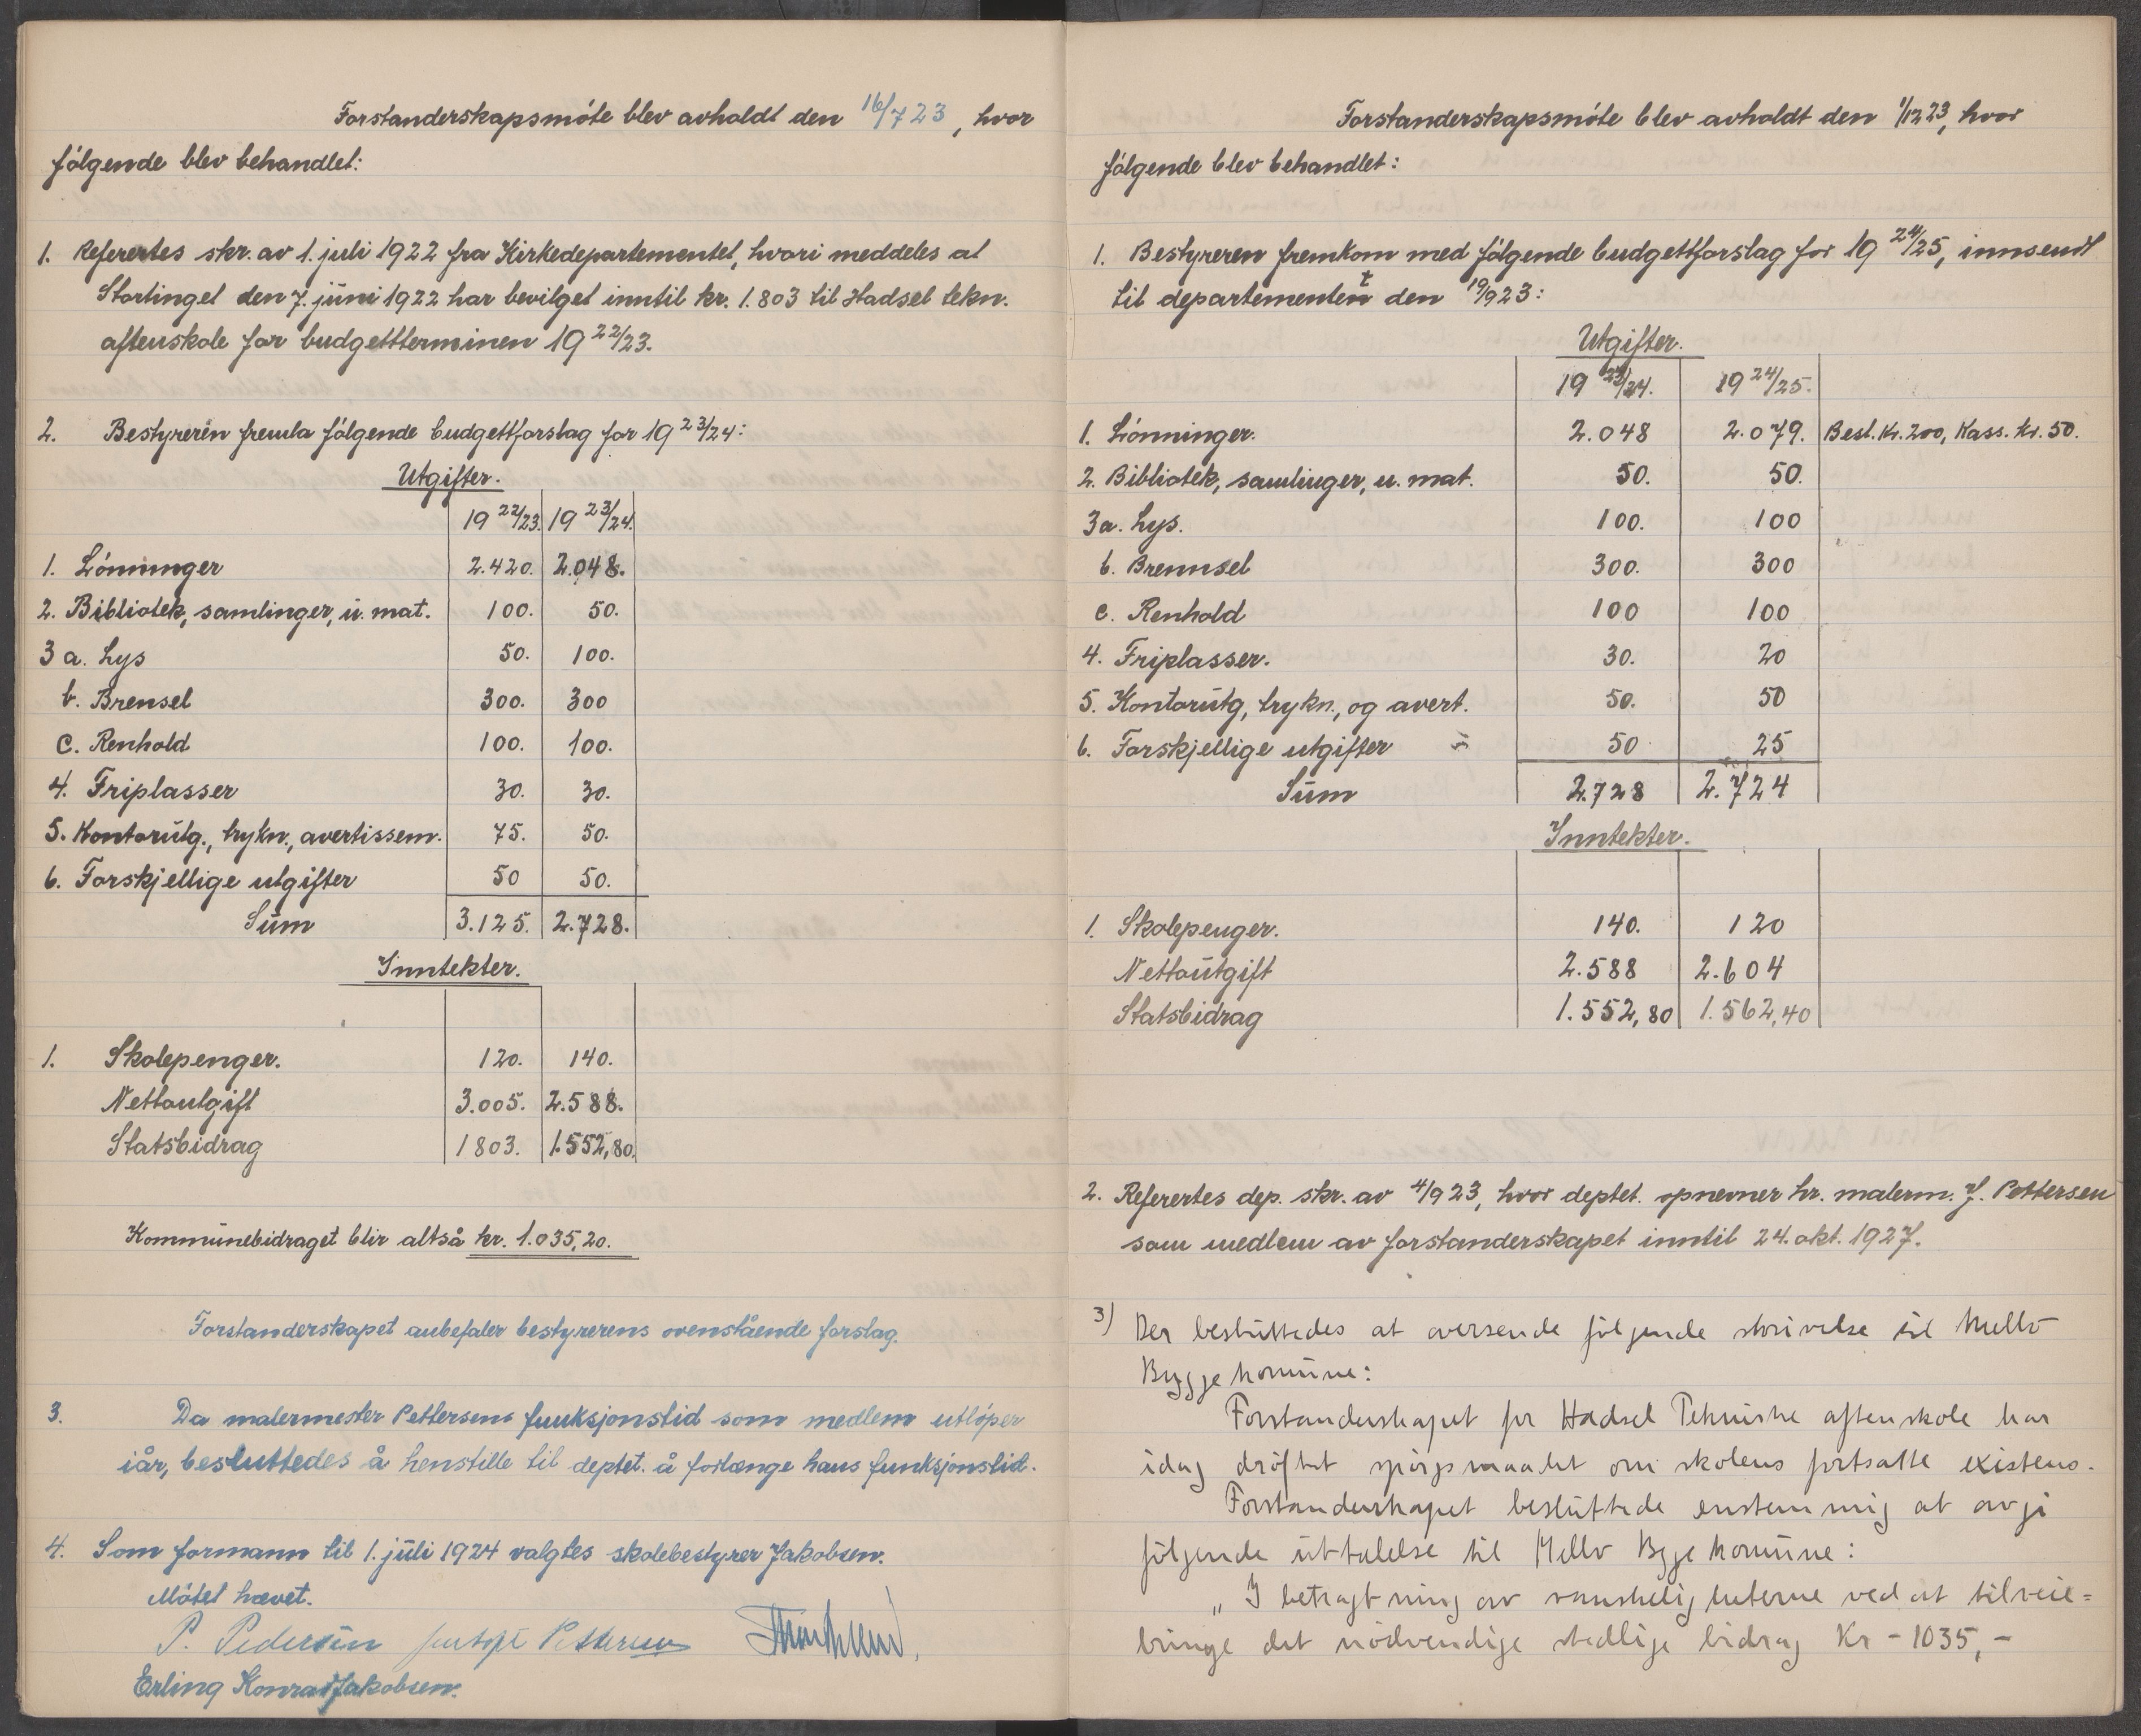 Forstanderskapsmöte blev avholdt den 16/7 23, hvor
fölgende blev behandlet:
1. Referertes skr. av 1. juli 1922 fra Kirkedepartementet, hvori meddeles at
Stortinget den 7. juni 1922 har bevilget inntil kr. 1.803 til Hadsel tekn.
aftenskole for budgettterminen 19 22/23.
2. Bestyreren fremla fölgende budgettforslag for 19 23/24:
Utgifter.
19 22/23. 19 23/24.
1. Lönninger 2.420. 2.048.
2. Bibliotek, samlinger, u. mat. 100. 50.
3 a. Lys 50. 100.
b. Brensel 300. 300
c. Renhold 100. 100.
4. Friplasser 30. 30.
5. Kontorutg., trykn., avertissem. 75. 50.
6. Forskjellige utgifter 50 50.
Sum 3.125. 2.728.
Inntekter.
1. Skolepenger. 120. 140.
Nettoutgift 3.005. 2.588.
Statsbidrag 1803. 1.552,80.
Kommunebidraget blir altså kr. 1.035,20.
Forstanderskapet anbefaler bestyrerens ovenstående forslag.
3. Da malermester Pettersens funksjonstid som medlem utlöper
iår, besluttedes å henstille til deptet. å forlænge hans funksjonstid.
4. Som formann til 1. juli 1924 valgtes skolebestyrer Jakobsen.
Mötet hævet.
P. Pedersen Pettersen
Erling Konrad Jakobsen.
Forstanderskapsmöte blev avholdt den 1/12 23, hvor
fölgende blev behandlet:
1. Bestyreren fremkom med fölgende budgettforslag for 19 24/25, innsendt
til departementet den 19/9 23:
Utgifter.
19 23/24. 19 24/25.
1. Lönninger. 2.048 2.079. Best. Kr. 200, Kass. kr. 50.
2. Bibliotek, samlinger, u. mat. 50. 50.
3a. Lys. 100. 100
b. Brennsel 300. 300
c. Renhold 100 100
4. Friplasser. 30. 20
5. Kontorutg, trykn., og avert. 50. 50
6. Forskjellige utgifter 50 25
Sum 2.728 2.724
Inntekter.
1. Skolepenger. 140. 120
Nettoutgift 2.588 2.604
Statsbidrag 1.552,80 1.562,40
2. Referertes dep. skr. av 4/9 23, hvor deptet. opnevner hr. malerm. J. Pettersen
som medlem av forstanderskapet inntil 24. okt. 1927.
3) Der besluttedes at oversende følgende skrivelse til Melbo
Byggekomune:
Forstanderskapet for Hadsel Tekniske aftenskole har
idag dröftet spörgsmaalet om skolens fortsatte existens.
Forstanderskapet besluttede enstemmig at avgi
følgende uttalelse til Melbo Byggekomune:
„I betragtning av vanskeligheterne ved at tilveie=
bringe det nödvendige stedlige bidrag Kr - 1035,-